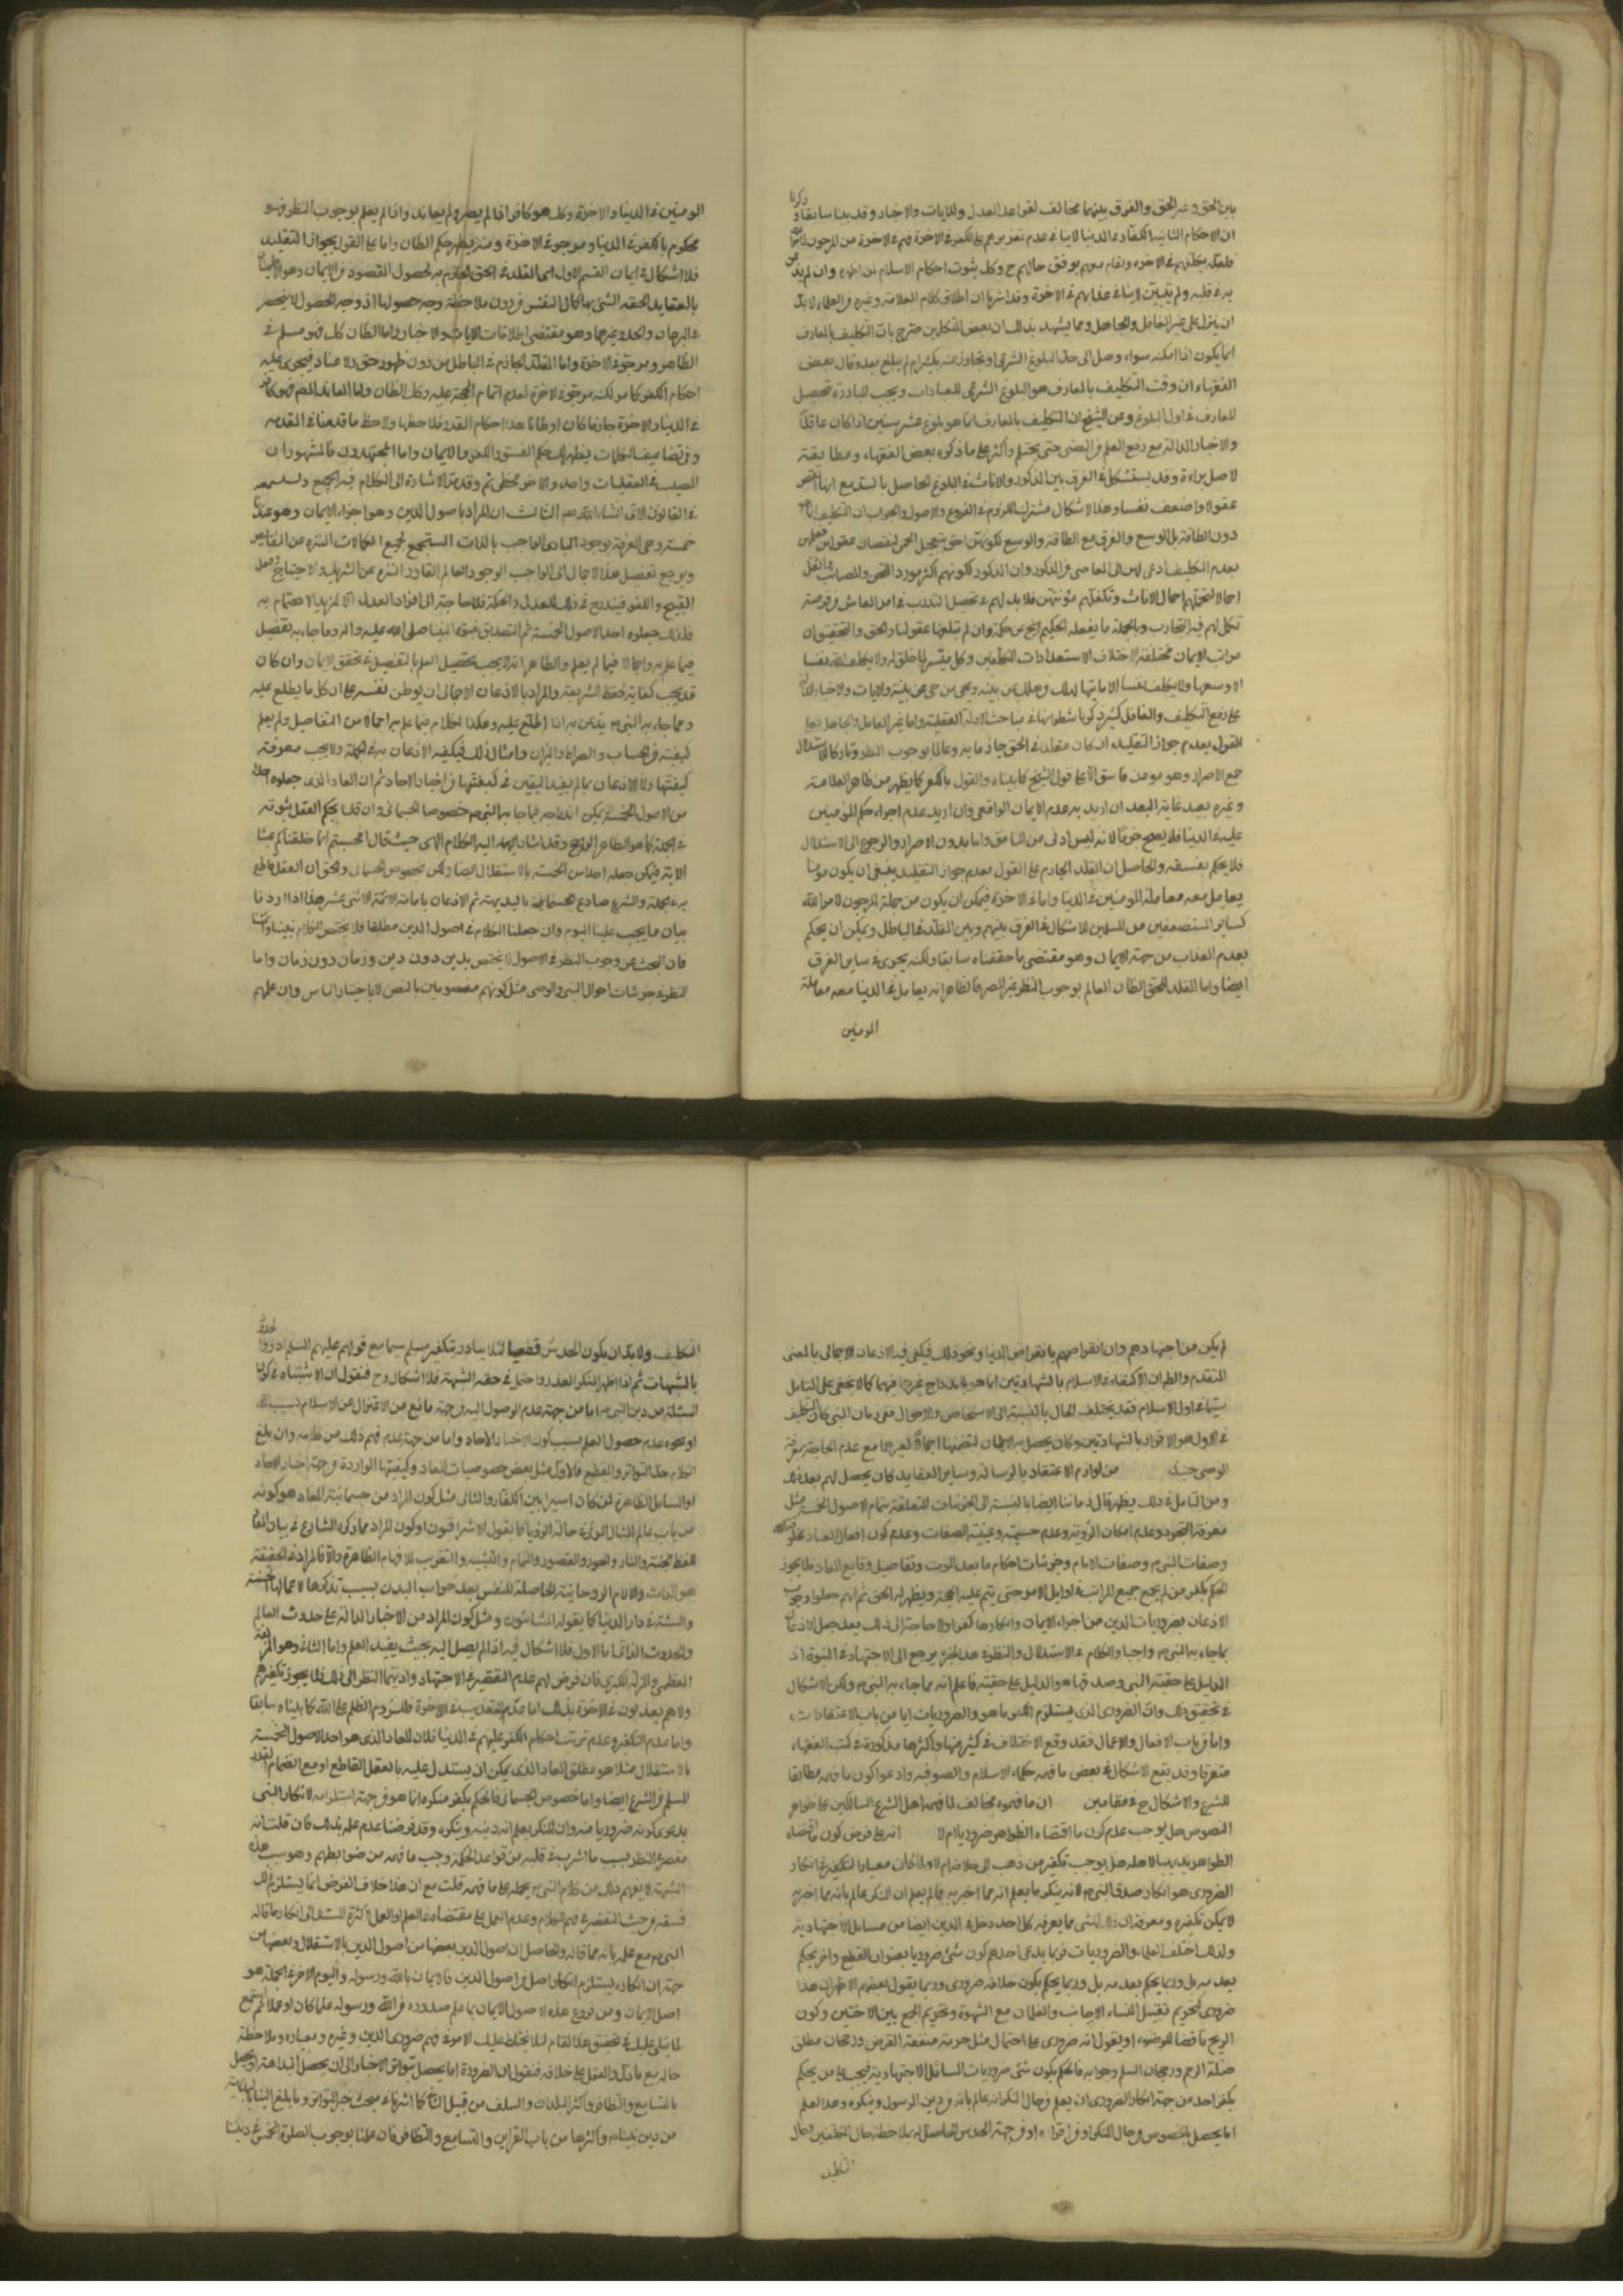 بين الحق وغير الحق والفرق بينهما مخالف لقواعد العدل وللآيات والاخبار وقد بينا سابقا وذكرنا
ان الاحكام الثانية للكفار في الدنيا لا ينافي عدم تعذيبهم على الكفر في الاخرة فهم في الاخرة من المرجون لامر الله
فلعله يكلفهم في الاخرة ويقام معهم بوفق حالهم ح وكل بثبوت احكام الاسلام لمن اظهره وان لم يذعن
به في قلبه ولم يتبين لا ينافي عذابهم في الاخرة وقد اشرنا ان اطلاق كلام العلامة وغيره من العلماء لا بد
ان ينزل على غير الغافل والجاهل ومما يشهد بذلك ان بعض المتكلمين صرح بان التكليف بالمعارف
انما يكون اذا امكنه سواء وصل الى حد البلوغ الشرعي او تجاوز عنه بكثير ام لم يبلغ بعد وقال بعض
الفقهاء ان وقت التكليف بالمعارف هو البلوغ الشرعي للعبادات ويجب المبادرة بتحصيل
المعارف في اول البلوغ وعن الشيخ ان التكليف بالمعارف انما هو بلوغ عشر سنين اذا كان عاقلا
والاخبار الدالة مع رفع القلم من الصبي حتى يحتلم واكثر على ما ذكره بعض الفقهاء ومطابقته
لاصل براءة وقد يستشكل في الفرق بين الذكور والاناث في البلوغ الحاصل بالسن مع انها انقص
عقولا واضعف نفسا وهذا الاشكال مشترك اللزوم في الفروع والاصول والجواب ان التكليف انما هو
دون الطاقة بل الوسع والفرق مع الطاقة والوسع
بعدم التكليف ادعى لهن الى المعاصي من الذكور وان الذكور لكونهم اكثر مورد
احمالا لتحملهم احمال الاناث وتكفلهم مؤنتهن فلا بد لهم في تحصيل التدرب في امر المعاش من فرصة
تكمل لهم فيه التجارب وبالجملة ما يفعله الحكيم انجح عن حكمة وان لم تبلغها عقولنا والحق والتحقيق ان
مراتب الايمان مختلفة لاختلاف الاستعدادات المكلفين وكل ميسر لما خلق له ولا يكلف الله نفسا
الا وسعها ولا يكلف نفسا الا ما اتيها ليهلك من هلك عن بينة ويحيى من حي عن بينة والايات والاخبار الدالة
على رفع التكليف والغافل كثير ذكرنا شطرا منها في مباحث الادلة العقلية واما غير الغافل والجاهل فعلى
القول بعدم جواز التقليد ان كان مقلدا في الحق جازما به وعالما بوجوب النظر وتاركا للاستدلال
مع الاصرار فهو مومن فاسق الا على قول الشيخ كما بيناه والقول بالكفر كما يظهر من ظاهر العلامة
وغيره بعيد غاية البعد ان اريد به عدم الايمان الواقعي وان اريد عدم اجراء حكم المومنين
عليه في الدنيا فلا يصح جزما لانه ليس ادنى من المنافق واما بدون الاصرار والرجوع الى الاستدلال
فلا يحكم بفسقه والحاصل ان المقلد الجازم على القول بعدم جواز التقليد ينبغي ان يكون مومنا
يعامل معه معاملة المومنين في الدنيا واما في الاخرة فيمكن ان يكون من جملة المرجون لامر الله
كسائر المستضعفين من المسلمين للاشكال في الفرق بينهم وبين المقلد في الباطل ويمكن ان يحكم
بعدم العذاب من جهة الايمان وهو مقتضى ما حققناه سابقا ولكنه يجري في ساير الفرق
ايضا واما المقلد للحق الظان العالم بوجوب النظر غير المصر فالظاهر انه يعامل في الدنيا معه معاملة
المومنين
المومنين في الدنيا والاخرة وكل هو كافر اذا لم يصر ولم يعاند واذا لم يعلم بوجوب النظر فهو
محكوم بالكفر في الدنيا ومرجو في الاخرة ومنه يظهر حكم الظان واما على القول بجواز التقليد
فلا اشكال في ايمان القسم الاول اى المقلد في الحق الجازم به لحصول المقصود من الايمان وهو الاطمينان
بالعقايد الحقة التي بها كمال النفس من دون ملاحظة وجه حصولها اذ وجه الحصول لا ينحصر
في البرهان والجدل وغيرهما وهو مقتضى اطلاقات الايات والاخبار واما الظان كل فهو مسلم في
الظاهر ومرجو في الاخرة واما المقلد الجازم في الباطل من دون ظهور حق ولا عناد فيجري عليه
احكام الكفر كما مر لكنه مرجو في الاخرة لعدم اتمام الحجة عليه وكل الظان واما المعاند المصر فهو كافر
في الدنيا والاخرة جازما كان او ظانا هذا احكام المقلد فلاحظها ولاحظ ما قدمنا في المقدمة
وفي تضاعيف الكلمات يظهر لك حكم الفسق والكفر والايمان واما المجتهدون فالمشهور ان
المصيب في العقليات واحد والاخر مخطئ اثم وقد مر الاشارة الى الكلام فيه
في القانون الاتي انشاء الله تعالى الثالث ان المراد باصول الدين وهو اجزاء الايمان وهو عندنا
خمسة وهي المعرفة بوجود الباري الواجب بالذات المستجمع لجميع الكمالات المنزه عن النقايص
ويرجع تفصيل هذا الاجمال الى الواجب الوجود العالم القادر المنزه عن الشريك والاحتياج وفعل
القبيح واللغو فيندرج في ذلك العدل والحكمة فلا حاجة الى افراد العدل الا لمزيد الاهتمام به
فلذلك جعلوه احد الاصول الخمسة ثم التصديق بنبوة نبينا صلى الله عليه واله وما جاء به تفصيل
فيما علم به واجمالا فيما لم يعلم والظاهر انه لا يجب تحصيل العلم بالتفصيل في تحقق الايمان وان كان
قد يجب كفاية لحفظ الشريعة والمراد بالاذعان الاجمالي ان يوطن نفسه على ان كل ما يطلع عليه
ومما جاء به النبي ص يذعن به اذا اطلع عليه وهكذا الكلام فيما علم به اجمالا من التفاصيل ولم يعلم
كيفيته من الحساب والصراط والميزان وامثال ذلك فيكفيه الاذعان به في الجملة ولا يجب معرفة
كيفيتها ولا الاذعان بما لم يفيد اليقين في كيفيتها من اخبار الاحاد ثم ان المعاد الذي جعلوه احد
من الاصول الخمسة يمكن اندراجه فيما جاء به النبي ص خصوصا الجسماني وان قلنا بحكم العقل بثبوته
في الجملة كما هو الظاهر الواضح وقد اشار اليه الكلام الالهي حيث قال افحسبتم انما خلقناكم عبثا
الاية فيمكن جعله احد من الخمسة بالاستقلال ايضا ولكن بخصوص الجسماني والحق ان العقل قاطع
به في الجملة والشرع صادع بجسمانيته بالبديهة ثم الاذعان بامامة الائمة الاثنى عشر هذا اذا اردنا
بيان ما يجب علينا اليوم وان جعلنا الكلام في اصول الدين مطلقا فلا يختص الكلام بنبينا
فان البحث عن وجوب النظر في الاصول لا يختص بدين دون دين وزمان دون زمان واما
النظر في جزئيات احوال النبي والوصي مثل كونهم معصومين بالنص لا باختيار الناس وان علمهم
لم يكن من اجتهادهم وان انقراضهم بانقراض الدنيا ونحو ذلك فيكفي فيه الاذعان الاجمالي بالمعنى
المتقدم والظاهر ان الاكتفاء في الاسلام بالشهادتين انما هو لاندراج غيرها فيهما كما لا يخفى على المتأمل
سيما في اول الاسلام فقد يختلف الحال بالنسبة الى الاشخاص والاحوال ففي زمان النبي كان التكليف
في الاول هو الاقرار بالشهادتين وكان يحصل به الايمان لتضمنها اجمالا لغيرهما مع عدم الحاجة بمعرفة
الوصي حينئذ من لوازم الاعتقاد بالرسالة وساير العقايد كان يحصل لهم بعد ذلك
ومن التامل في ذلك يظهر حال زماننا ايضا بالنسبة الى الجزئيات المتعلقة بتمام الاصول الخمسة مثل
معرفة التجرد وعدم امكان الرؤية وعدم جسميته وعينية الصفات وعدم كون افعال العباد مخلوقة لله
وصفات النبي ص وصفات الامام وجزئيات احكام ما بعد الموت وتفاصيل وقايع المعاد فلا يجوز
الحكم بكفر من لم يجمع جميع المراتب في اوايل الامر حتى يتم عليه الحجة ويظهر له الحق ثم انهم جعلوا وجوب
الاذعان بضروريات الدين من اجزاء الايمان وانكارها كفرا ولا حاجة الى ذلك بعد جعل الاذعان
بما جاء به النبي ص واجبا والكلام في الاستدلال والنظر في هذا الجزء يرجع الى الاجتهاد في النبوة اذ
الدليل على حقية النبي وصدقه هو الدليل على حقية ما علم انه مما جاء به النبي ص ولكن الاشكال
في تحقيق ذلك وان الضروري الذي يستلزم انكاره الكفر ما هو والضروريات اما من باب الاعتقادات
واما من باب الافعال والاعمال فقد وقع الاختلاف في كثير منها واكثرها مذكورة في كتب الفقهاء
متفرقا وقد يقع الاشكال في بعض ما فهمه حكماء الاسلام والصوفية وادعوا كون ما فهمه مطابقا
للشرع والاشكال ح في مقامين ان ما فهموه مخالف لما فهمه اهل الشرع السالكين على ظواهر
النصوص هل يوجب عدم كون ما اقتضاه الظواهر ضروريا ام لا انه على فرض كون ما اقتضاه
الظواهر بديهيا لاهله هل يوجب تكفير من ذهب الى خلافه ام لا ولما كان معيار التكفير في انكار
الضروري هو انكار صدق النبي ص لانه ينكر ما يعلم انه مما اخبر به فما لم يعلم ان المنكر عالم بانه مما اخبر به
لا يمكن تكفيره ومعرفة ان ذلك الشئ مما يعرفه كل احد دخل في الدين ايضا من مسايل الاجتهادية
ولذلك اختلف العلماء والضروريات فربما يدعى احدهم كون شئ ضروريا بعنوان القطع واخر يحكم
بعدمه بل وربما يحكم بعدمه بل وربما يحكم بكون خلافه ضروري وربما يقول بعضهم الاظهر ان هذا
ضروري كتحريم تقبيل النساء الاجانب والغلمان مع الشهوة وتحريم الجمع بين الاختين وكون
الريح ناقضا للوضوء او يقول انه ضروري على احتمال مثل حرمة منفعة القرض ورجحان مطلق
صلة الرحم ورجحان السلم وجوابه فالحكم بكون شئ ضروريات المسائل الاجتهادية فيجب على من يحكم
بكفر احد من جهة انكار الضروري ان يعلم من حال المنكر انه عالم بانه من دين الرسول وينكره وهذا العلم
اما يحصل بالخصوص من حال المنكر او من اقراره او من جهة الحدس الحاصل له بملاحظة حال المكلفين وحال
التكليف
التكليف ولا بد ان يكون الحدس قطعيا لئلا يبادر بتكفير مسلم سيما مع قولهم عليهم السلم ادرؤا الحدود
بالشبهات ثم اذا اظهر المنكر العذر واحتمل في حقه الشبهة فلا اشكال وح فنقول ان الاشتباه في كون
المسئلة من دين النبي ص اما من جهة عدم الوصول اليه من جهة مانع من الاعتزال عن الاسلام بسبب
او نحوه عدم حصول العلم بسبب كون الاخبار الاحاد واما من جهة عدم فهم ذلك من كلامه وان بلغ
الكلام حد التواتر والقطع فالاول مثل بعض خصوصيات المعاد وكيفيتها الواردة من جهة اخبار الاحاد
او المسايل الظاهرة لمن كان اسيرا بين الكفار والثاني مثل كون المراد من جسمانية المعاد هو كونه
من باب عالم المثال المرئي في حالة الرؤيا كما يقول الاشراقيون او كون المراد مما ذكره الشارع في بيان المعاد
لفظ الجنة والنار والحور والقصور والتشبيه والتقريب للافهام الظاهرة والا فالمراد في الحقيقة
هو اللذات والالام الروحانية الحاصلة للنفس بعد خراب البدن بسبب تذكرها لاعمالها الحسنة
والسيئة في دار الدنيا كما يقوله المشاؤن ومثل كون المراد من الاخبار الدالة على حدوث العالم
والحدوث الذاتي اما الاول فلا اشكال فيه اذا لم يصل اليه بحيث يفيد العلم واما الثاني وهو المزلقة
العظمى والمزلة الكبرى فان فرض لهم عدم التقصير في الاجتهاد واديهما النظر الى ذلك فلا يجوز تكفيرهم
ولا هم يعذبون في الاخرة بذلك اما عدم التعذيب في الاخرة فللزوم الظلم على الله كما بيناه سابقا
واما عدم التكفير وعدم ترتب احكام الكفر عليهم في الدنيا فلان المعاد الذي هو احد الاصول الخمسة
بالاستقلال مثلا هو مطلق المعاد الذي يمكن ان يستدل عليه بالعقل القاطع او مع انضمام القدر
المسلم من الشرع ايضا واما خصوص الجسماني فالحكم بكفر منكره انما هو من جهة استلزامه لانكار النبي
بدعوى كونه ضروريا منه وان المنكر يعلم انه دينه وينكره وقد فرضنا عدم علمه بذلك فان قلت انه
مقصر في النظر بسبب ما اشرب في قلبه من قواعد الحكمة وجب ما فهمه من ضوابطهم وهو بسبب هذه
الشبهة لا يفهم ذلك من كلام النبي ص ويحمله على ما فهمه قلت مع ان هذا خلاف الفرض انما يستلزم ذلك
فسقه من حيث التقصير في فهم الكلام وعدم العمل على مقتضاه
النبي ص مع علمه بانه مما قاله والحاصل ان اصول الدين بعضها من اصول الدين بالاستقلال وبعضها من
جهة ان انكاره يستلزم انكار اصل من اصول الدين فالايمان بالله ورسوله واليوم الاخر في الجملة هو
اصل الايمان ومن فروع هذه الاصول الايمان بما علم صدوره من الله ورسوله علما كان او عملا
لما يتلى عليك في تحقيق هذا المقام لئلا يختلط عليك الامر في فهم ضروري الدين وغيره ومعياره وملاحظة
حاله مع ما دل والعقل على خلافه فنقول ان الضرورة اما يحصل بتواتر الاخبار الى ان يحصل البداهة او يحصل
بالتسامع والتظافر واكثر البلدان والسلف من قبيل كما اشرنا في مبحث خبر التواتر وما بلغ الينا بالبداهة
من دين نبينا ص واكثرها من باب القراين والتسامع والتظافر فان علمنا بوجوب الصلوة الخمس في ديننا